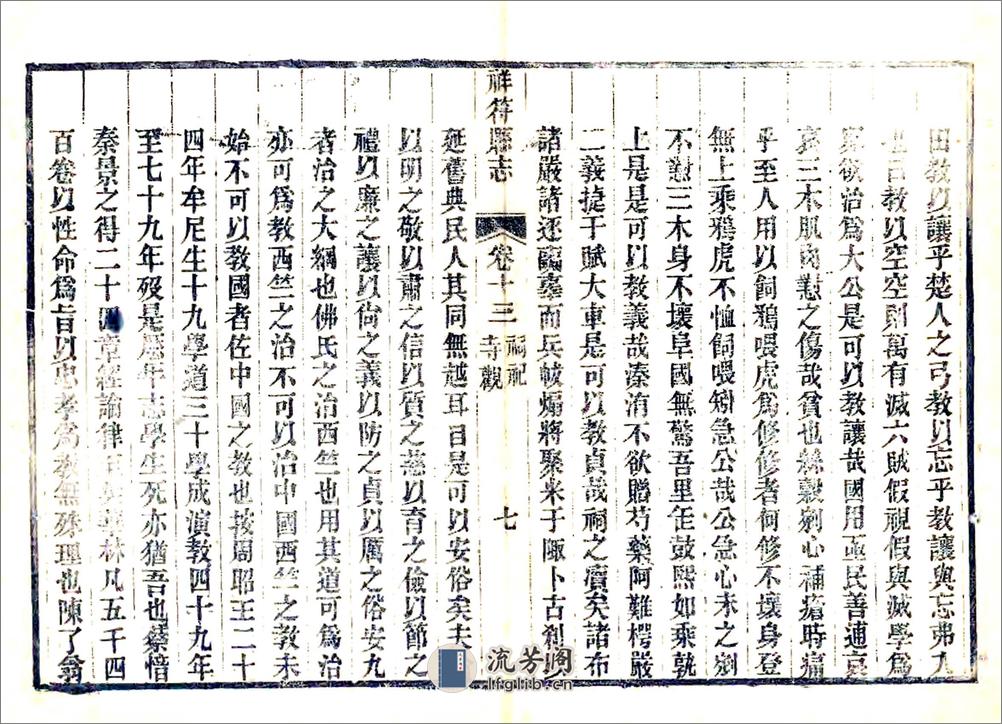 田教以讓乎楚人之弓教以忘乎教讓與忘弗九
曰教以空空則萬有滅六賊假視假與滅學爲
欲治爲大公是可以教讓哉國用亟民善逋哀
哀三木肌肉懟之傷哉貧也絲穀剜心補瘡時痛
乎至人用以飼鴉喂虎爲修修者何修不壞身登
無上乘鴉虎不恤飼喂矧急公哉公急心未之剜
不懟三木身不壞阜國無驚吾里缶鼓熙如乘孰
上是是可以教義哉溱洧不欲贈芍藥阿難楞嚴
二義捷于賦大車是可以教貞哉祠之瀆矣諸布
諸嚴諸逐而兵帔煽將聚米于陬卜古刹
祥符縣志 卷十三 祠祀 寺觀 七
延舊典民人其同無越耳目是可以安俗矣夫
以明之敬以肅之信以質之慈以育之儉以節之
禮以廉之讓以尙之義以防之貞以厲之俗安九
者治之大綱也佛氏之治西竺也用其道可爲治
亦可爲教西竺之治不可以治中國西竺之教未
始不可以敎國者佐中國之教也按周昭王二十
四年牟尼生十九學道三十學成演教四十九年
至七十九年歿是歷年志學生死亦猶吾也蔡愔
秦景之得二十四章經論律林凡五千四
百卷以性命爲旨以忠孝爲教無殊理也陳了翁
流芳阁
lfglib.cn